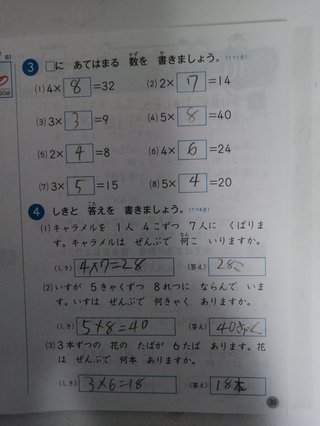 3 □に あてはまる 数を 書きましょう。
(1) 4×8=32 (2) 2×7=14
(3) 3×3=9 (4) 5×8=40
(5) 2×4=8 (6) 4×6=24
(7) 3×5=15 (8) 5×4=20
4 しきと 答えを 書きましょう。
(1) キャラメルを 1人 4こずつ 7人に くばりま
す。キャラメルは ぜんぶで 何こ いりますか。
(しき) 4×7=28 (答え) 28こ
(2) いすが 5きゃくずつ 8れつに ならんで いま
す。いすは ぜんぶで 何きゃく ありますか。
(しき) 5×8=40 (答え) 40きゃく
(3) 3本ずつの 花の たばが 6たば あります。花
は ぜんぶで 何本 ありますか。
(しき) 3×6=18 (答え) 18本
39